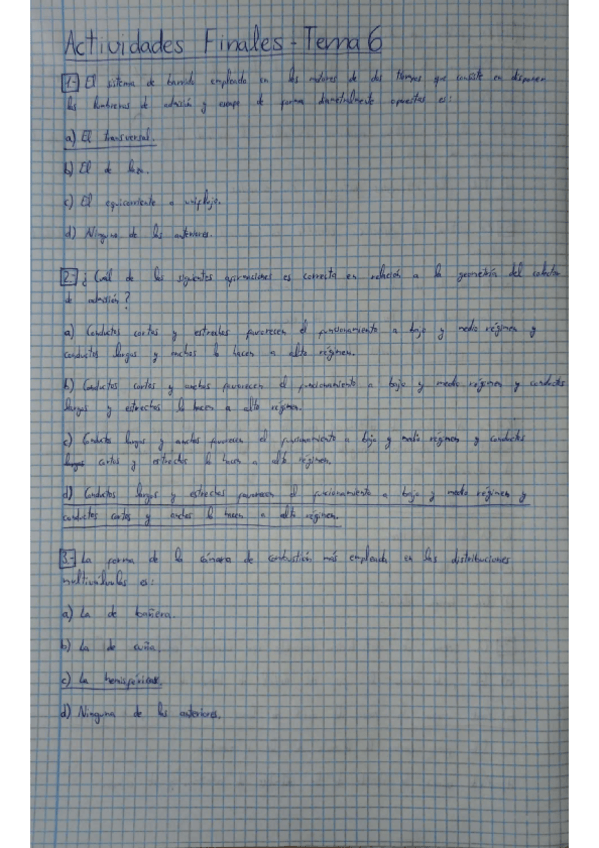 Actividades Finales - Tema 6
1- El sistema de barrido empleado en los motores de dos tiempos que consiste en disponer
las lumbreras de admisión y escape de forma diametralmente opuestas es:
a) El transversal.
b) El de lazo.
c) El equicorriente o uniflujo.
d) Ninguna de las anteriores.
2- ¿Cuál de las siguientes afirmaciones es correcta en relación a la geometría del colector
de admisión?
a) Conductos cortos y estrechos favorecen el funcionamiento a bajo y medio régimen y
conductos largos y anchos lo hacen a alto régimen.
b) Conductos cortos y anchos favorecen el funcionamiento a bajo y medio régimen y conductos
largos y estrechos lo hacen a alto régimen.
c) Conductos largos y anchos favorecen el funcionamiento a bajo y medio régimen y conductos
largos cortos y estrechos lo hacen a alto régimen.
d) Conductos largos y estrechos favorecen el funcionamiento a bajo y medio régimen y
conductos cortos y anchos lo hacen a alto régimen.
3- La forma de la cámara de combustión más empleada en las distribuciones
multiválvulas es:
a) La de bañera.
b) La de cuña
c) La hemisférica.
d) Ninguna de las anteriores.